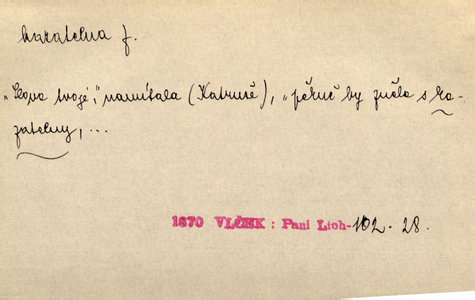 kazatelna f.
„Slova tvoje," namítala (Katruše), „pěkně by zněla s ka-
zatelny, ...
1870 VLČEK : Paní Lich-102. 28.